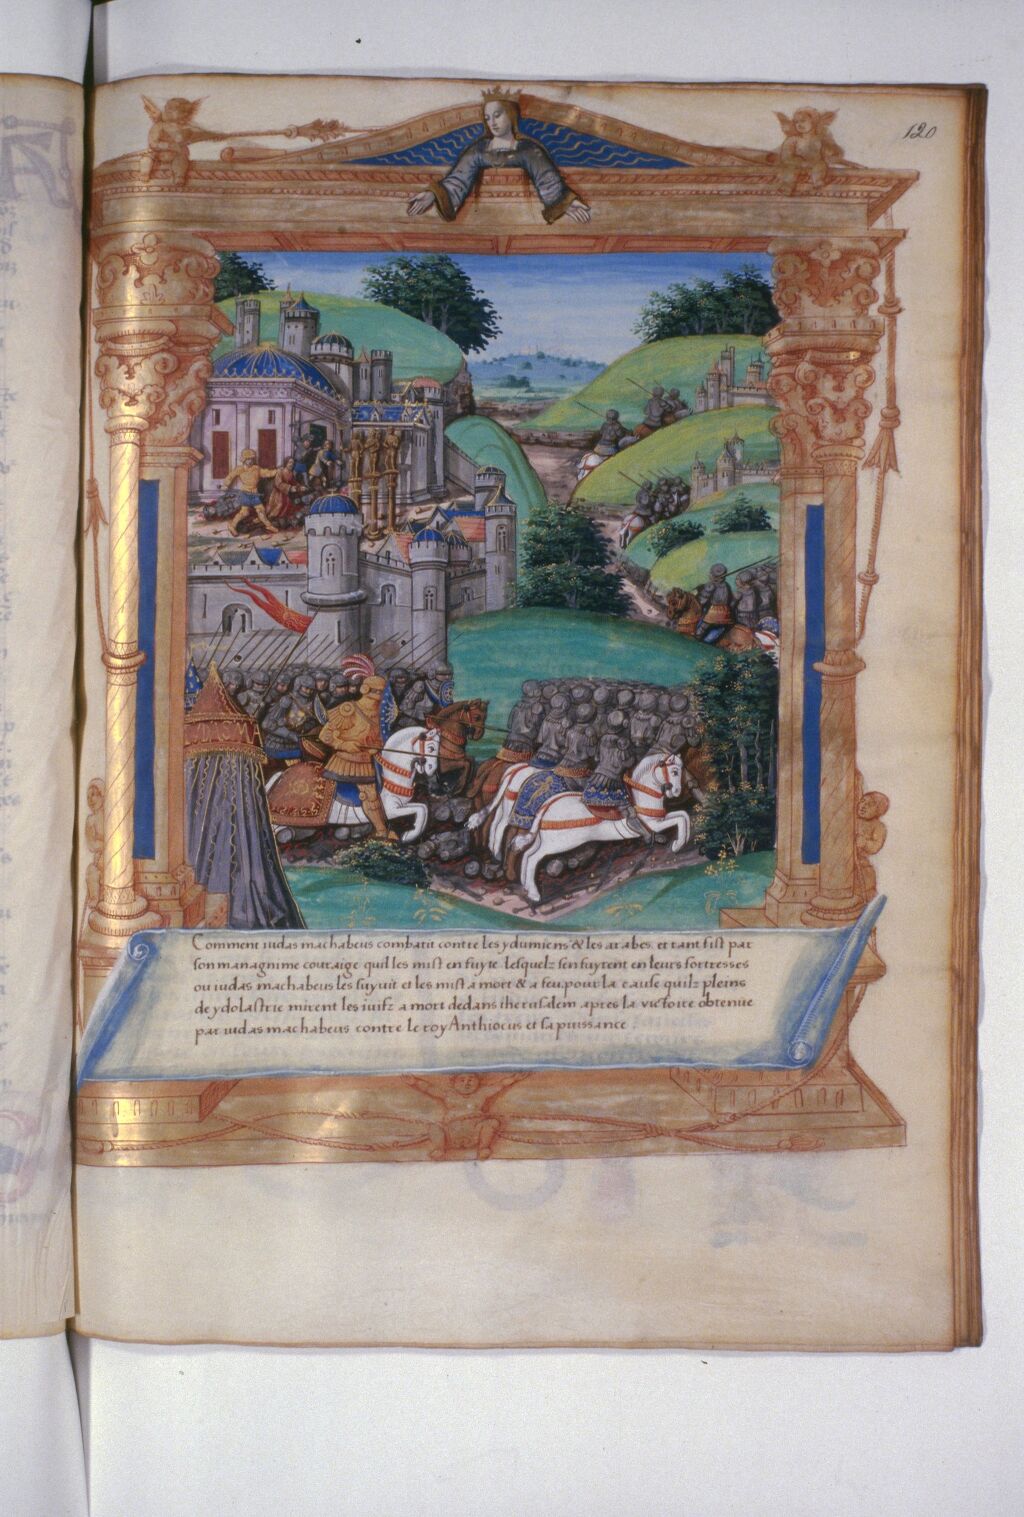 120
Comment iudas machabeus combatit contre les ydumiens & les arabes. et tant fist par
son managnime couraige quil les mist en fuyte. lesquelz sen fuyrent en leurs fortresses
ou iudas machabeus les suyuit et les mist a mort & a feu. pour la cause quilz pleins
de ydolastrie mirent les iuifz a mort dedans iherusalem apres la victoire obtenue
par iudas machabeus contre le roy Anthiocus et sa puissance